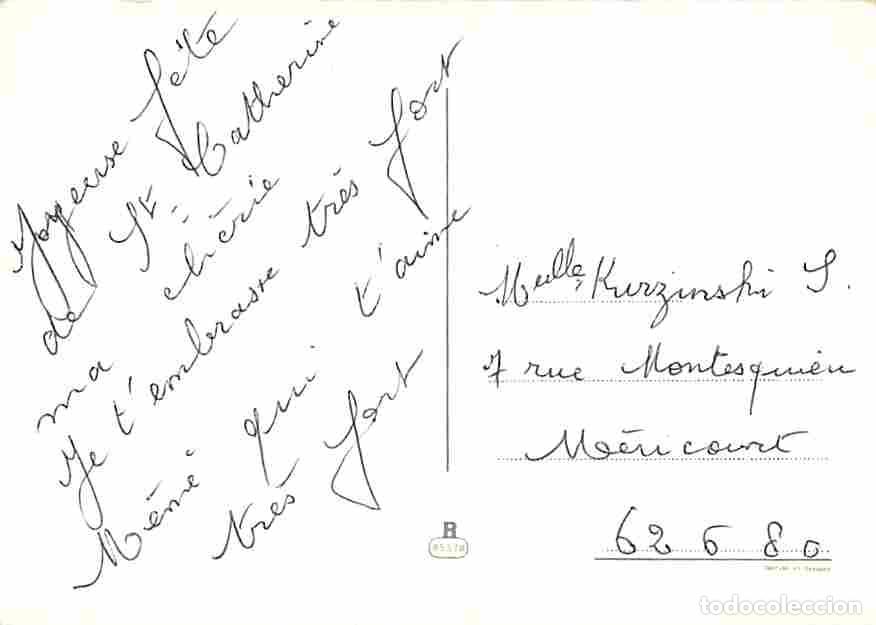 Joyeuse fête
de St Catherine
ma chérie
Je t'embrasse très fort
Mémé qui t'aime
très fort
Melle Kurzinski S.
7 rue Montesquieu
Méricourt
62680
R
todocoleccion